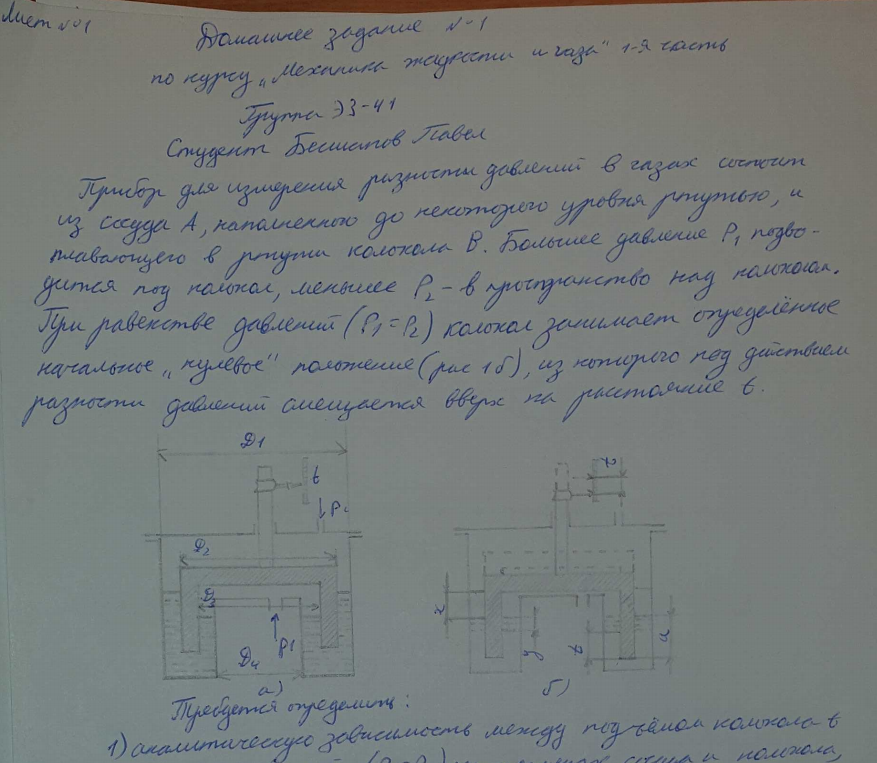 Лист №1
Домашнее задание №1
по курсу „Механика жидкости и газа" 1-я часть
Группа Э3-41
Студент Бесшапов Павел
Прибор для измерения разности давлений в газах состоит
из сосуда А, наполненного до некоторого уровня ртутью, и
плавающего в ртути колокола В. Большее давление P₁ подво-
дится под колокол, меньшее P₂ - в пространство над колоколом.
При равенстве давлений (P₁=P₂) колокол занимает определённое
начальное „нулевое" положение (рис 1б), из которого под действием
разности давлений смещается вверх на расстояние t.
D1
t
P₂
D2
D3
P1
D4
а)
t
x
y
t
a
б)
Требуется определить:
1) аналитическую зависимость между подъёмом колокола t
сосуда и колокола,